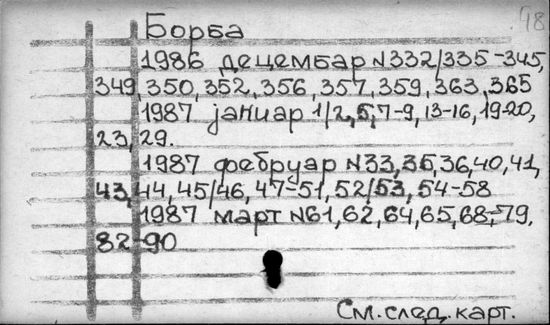 48
Борба
1986 децембар N332/335-345,
349,350,352,356,357,359,363,365
1987 јануар 1/2,5,7-9,13-16,19-20,
23,29.
1987 фебруар N33,35,36,40,41,
43,44,45/46,47-51,52/53,54-58
1987 март N61,62,64,65,68-79,
82-90
См.след.карт.